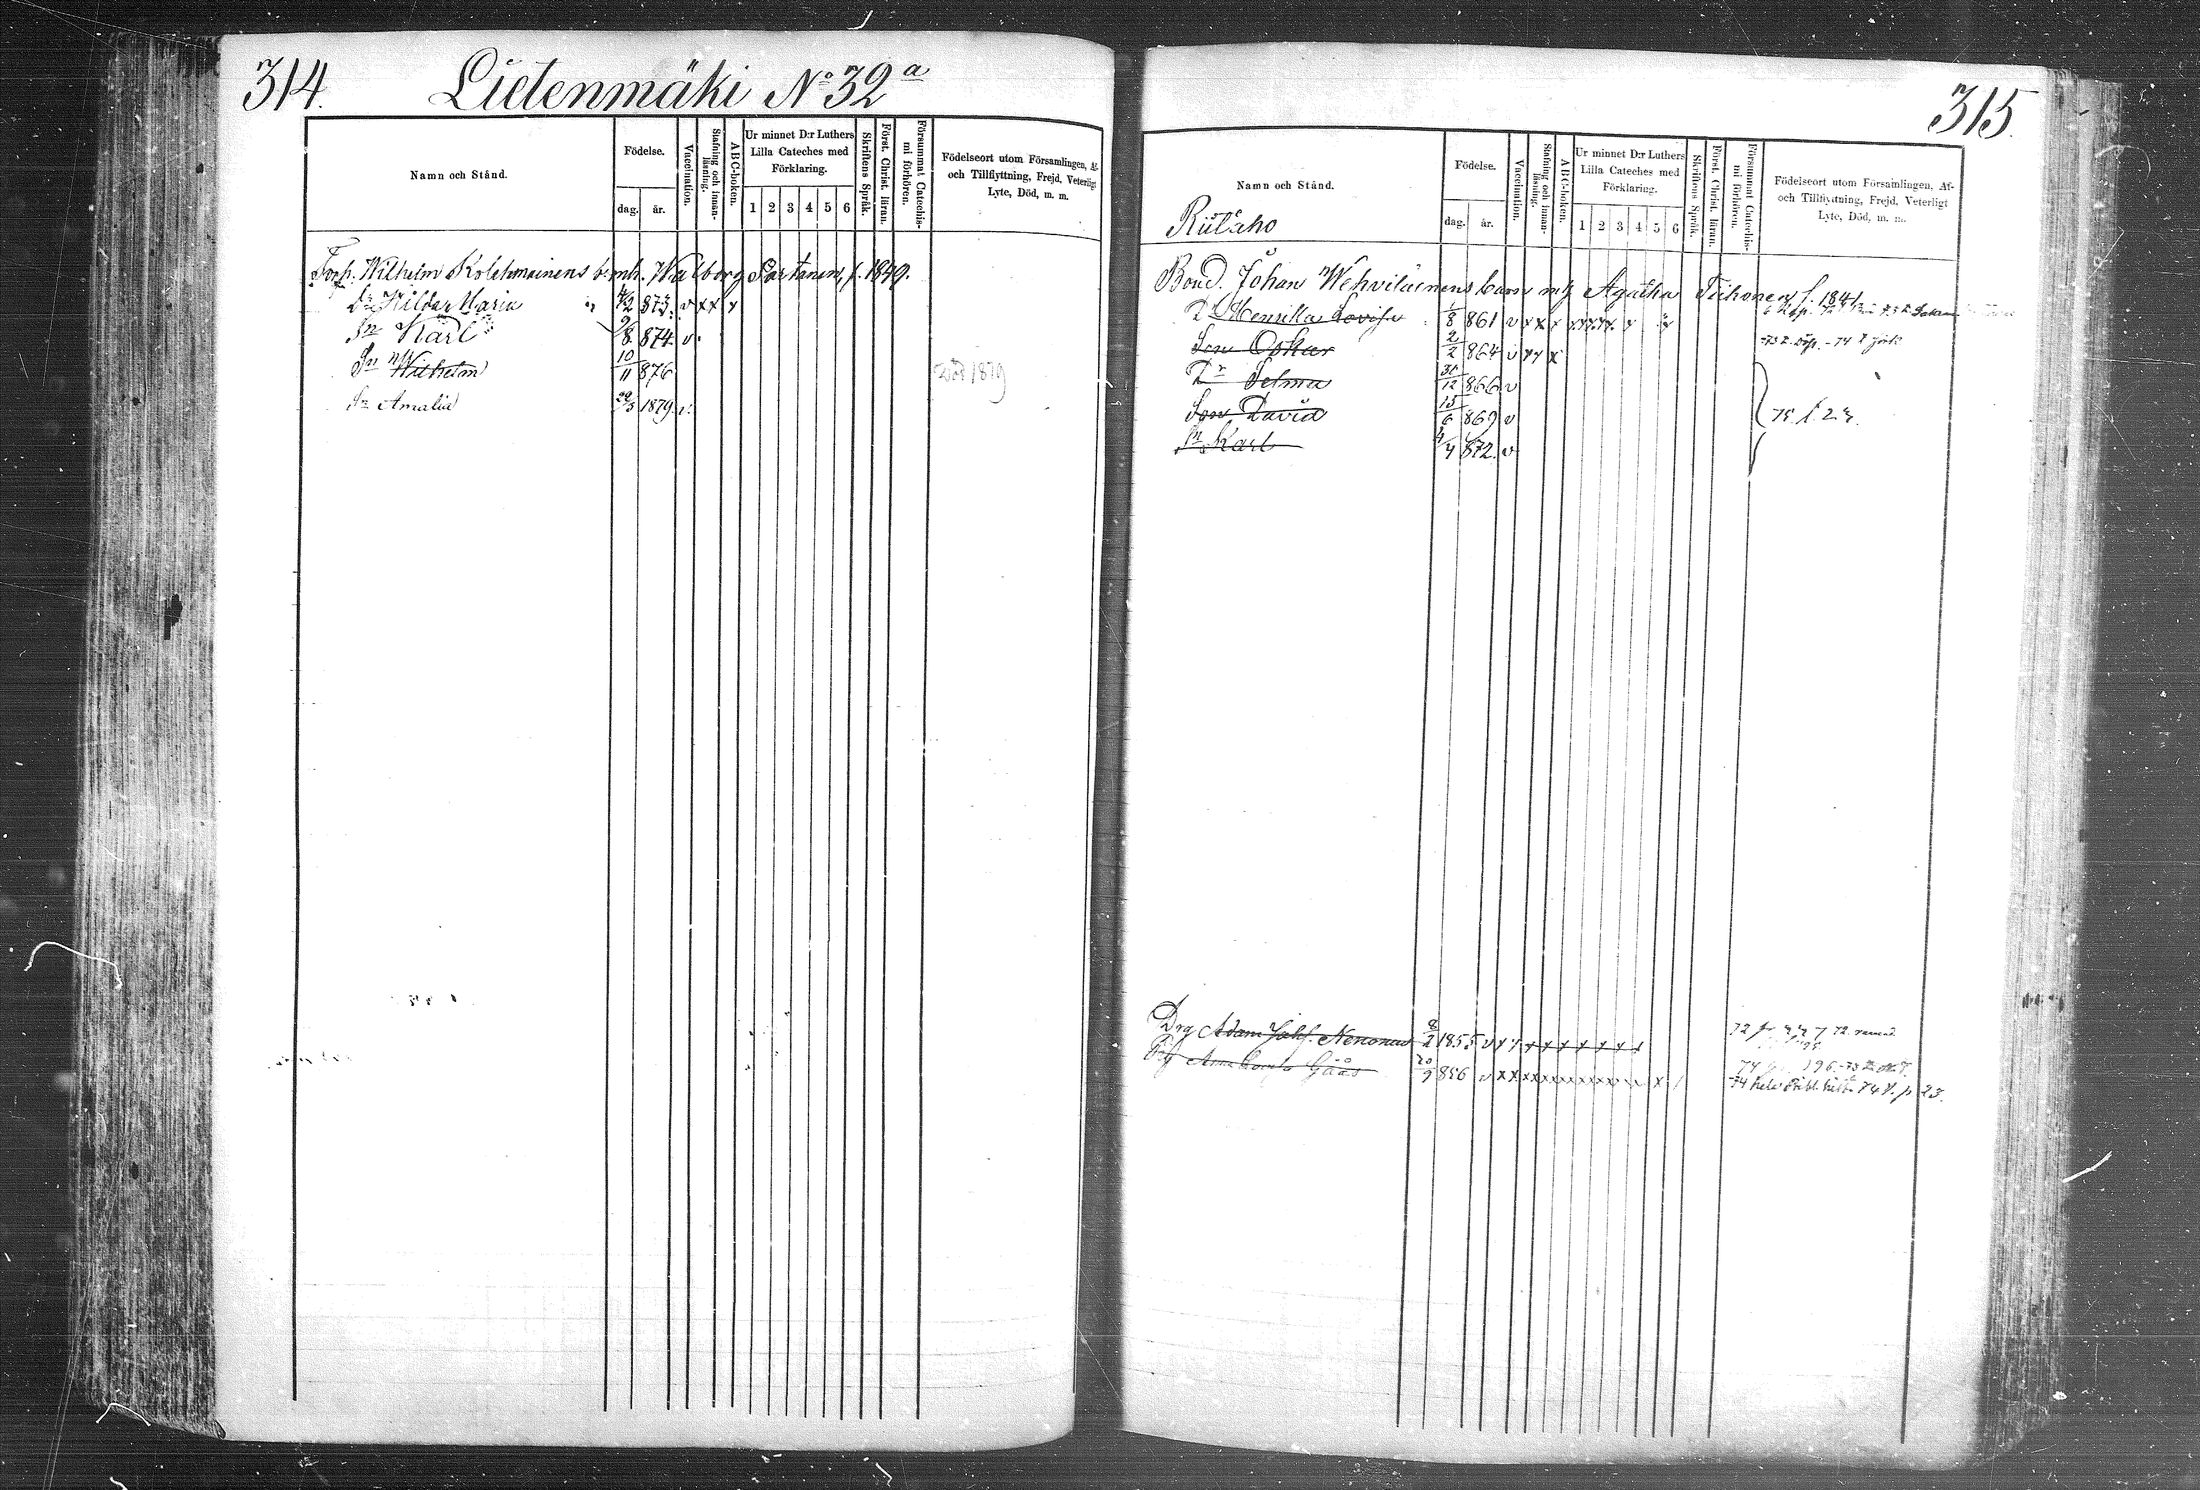 314.
Lietenmäki No 32a
Namn och Stånd.
Födelse.
dag.
år.
Vaccination.
Stafning och innanläsning.
ABC-boken.
Ur minnet D:r Luthers
Lilla Cateches med
Förklaring.
1 2 3 4 5 6
Skriftens Språk.
Först. Christ. läran.
Försummat Catechismi förhören.
Födelseort utom Församlingen, Af-
och Tillflyttning, Frejd, Veterligt
Lyte, Död, m. m.
Torp. Wilhelm Kolehmainens b. mh. Walborg Partanen, f. 1849.
Dr Hilda Maria 4/2 873. v x x x
Sn Karl 9/8 874. v.
Sn Wilhelm 10/11 876 Död 1879
Amalia 29/5 1879. v.
315.
Namn och Stånd.
Födelse.
dag.
år.
Vaccination.
Stafning och innanläsning.
ABC-boken.
Ur minnet D:r Luthers
Lilla Cateches med
Förklaring.
1 2 3 4 5 6
Skriftens Språk.
Först. Christ. läran.
Försummat Catechismi förhören.
Födelseort utom Församlingen, Af-
och Tillflyttning, Frejd, Veterligt
Lyte, Död, m. m.
Riiliaho
Bond. Johan Wehviläinens barn m h Agatha Tiihonen f. 1841.
Dr Henrika Lovisa 1/8 861 v x x x
Son Oskar 2/2 864 v x x x
Dr Selma 31/12 866 v
Son David 15/6 869 v 75. f. 23.
Sn Karl 4/4 872. v
Drg Adam Nenonen 8/2 1855 v x x x x x x x x x
Pig Anna Gåås 20/9 856 v x x x x x x x x x